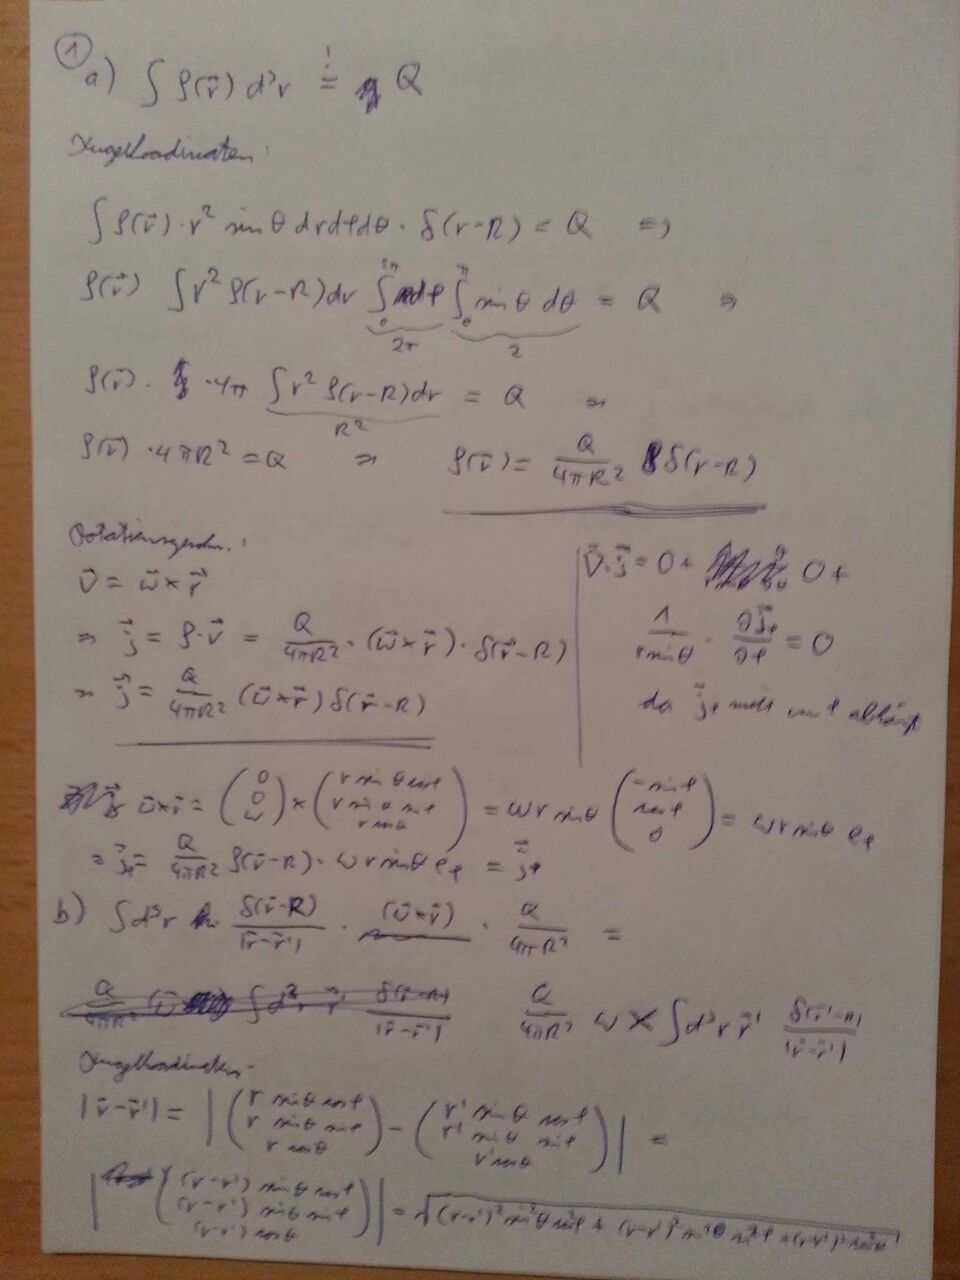 ①
a) ∫ ρ(r⃗) d³r != Q
Kugelkoordinaten:
∫ ρ(r⃗) · r² sin θ dr dφ dθ · δ(r-R) = Q ⇒
ρ(r⃗) ∫ r² ρ(r-R) dr ∫₀^2π dφ ∫₀^π sin θ dθ = Q ⇒
2π 2
ρ(r⃗) · 4π ∫ r² ρ(r-R) dr = Q ⇒
R²
ρ(r⃗) · 4πR² = Q ⇒ ρ(r⃗) = Q/4πR² δ(r-R)
v⃗ = ω⃗ × r⃗
⇒ j⃗ = ρ · v⃗ = Q/4πR² · (ω⃗ × r⃗) · δ(r⃗-R)
⇒ j⃗ = Q/4πR² (ω⃗ × r⃗) δ(r⃗-R)
∇⃗ · j⃗ = 0 + 0 +
1/(r sin θ) · ∂j⃗φ/∂φ = 0
da j⃗φ nicht von φ abhängt
ω⃗ × r⃗ = (0 0 ω) × (r sin θ cos φ r sin θ sin φ r cos θ) = ω r sin θ (-sin φ cos φ 0) = ω r sin θ eφ
⇒ j⃗ = Q/4πR² ρ(r⃗-R) · ω r sin θ eφ = j⃗φ
b) ∫ d³r δ(r⃗-R)/|r⃗-r⃗'| · (ω⃗ × r⃗) · Q/4πR² =
Q/4πR² ω × ∫ d³r r⃗' δ(r⃗'-R)/|r⃗-r⃗'|
Kugelkoordinaten
|r⃗-r⃗'| = |(r sin θ cos φ r sin θ sin φ r cos θ) - (r' sin θ cos φ r' sin θ sin φ r' cos θ)| =
|((r-r') sin θ cos φ (r-r') sin θ sin φ (r-r') cos θ)| = √((r-r')² sin² θ cos² φ + (r-r')² sin² θ sin² φ + (r-r')² cos² θ)